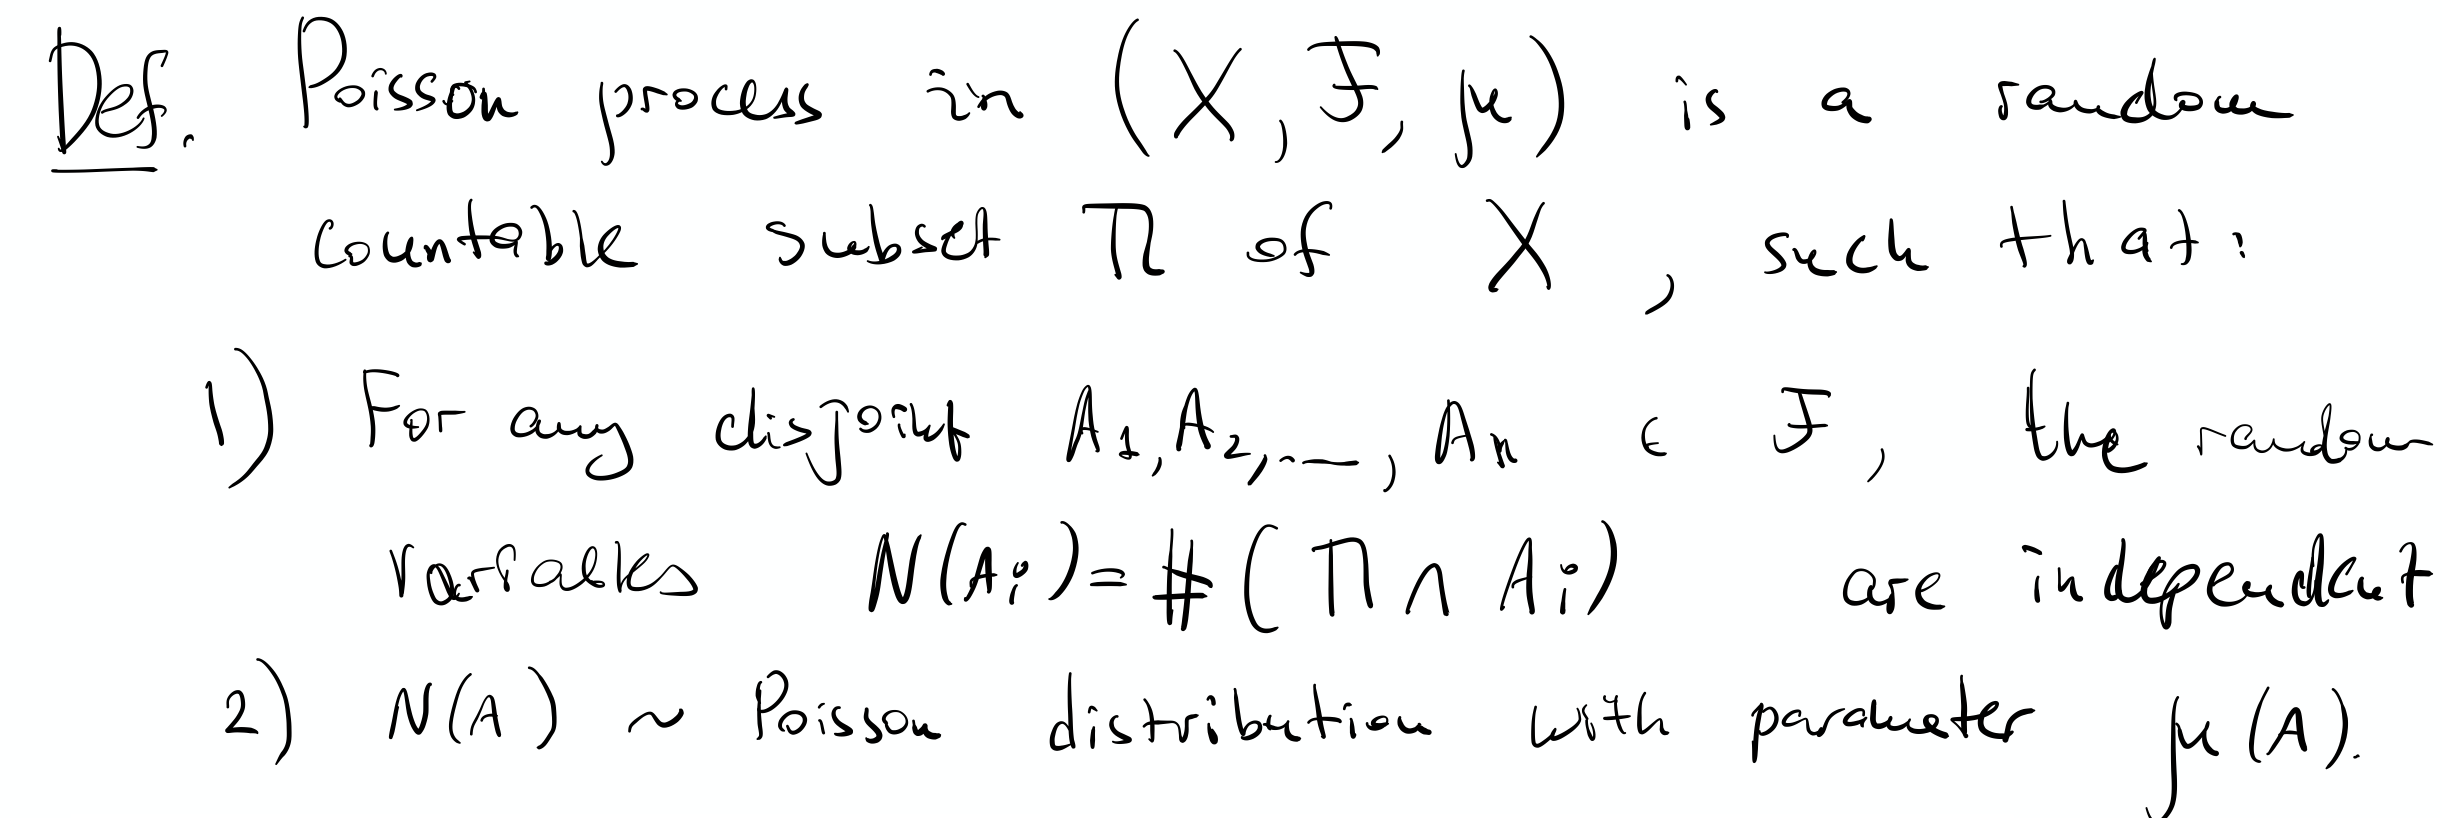 Def. Poisson process in (X, ℱ, μ) is a random
countable subset Π of X, such that:
1) For any disjoint A₁, A₂, ..., Aₙ ∈ ℱ, the random
variables N(Aᵢ) = #(Π ∩ Aᵢ) are independent
2) N(A) ~ Poisson distribution with parameter μ(A).